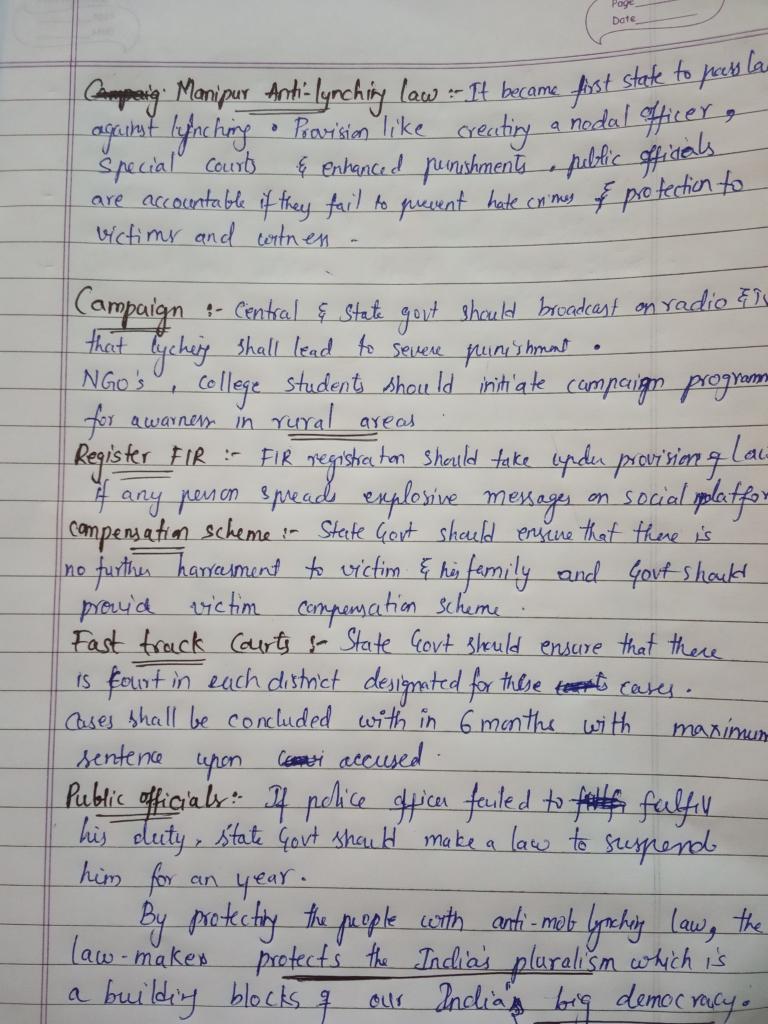 Page
Date
Manipur Anti-lynching law :- It became first state to pass la
against lynching . Provision like creating a nodal officer,
special courts & enhanced punishments, public officials
are accountable if they fail to prevent hate crimes & protection to
victims and witness -
Campaign :- Central & State govt should broadcast on radio & TV
that lyching shall lead to severe punishment .
NGO's, college students should initiate campaign programm
for awarness in rural areas
Register FIR :- FIR registraton should take under provision of law
if any person spreads explosive messages on social platfor
compensation scheme :- State Govt should ensure that there is
no further harrasment to victim & his family and Govt should
provide victim compensation scheme .
Fast track Courts :- State Govt should ensure that there
is court in each district designated for these cases .
Cases shall be concluded with in 6 months with maximum
sentence upon accused .
Public officials :- If police officer failed to fulfill
his duty, state Govt should make a law to suspend
him for an year .
By protecting the people with anti-mob lynching law, the
law-makers protects the India's pluralism which is
a building blocks of our India's big democracy .